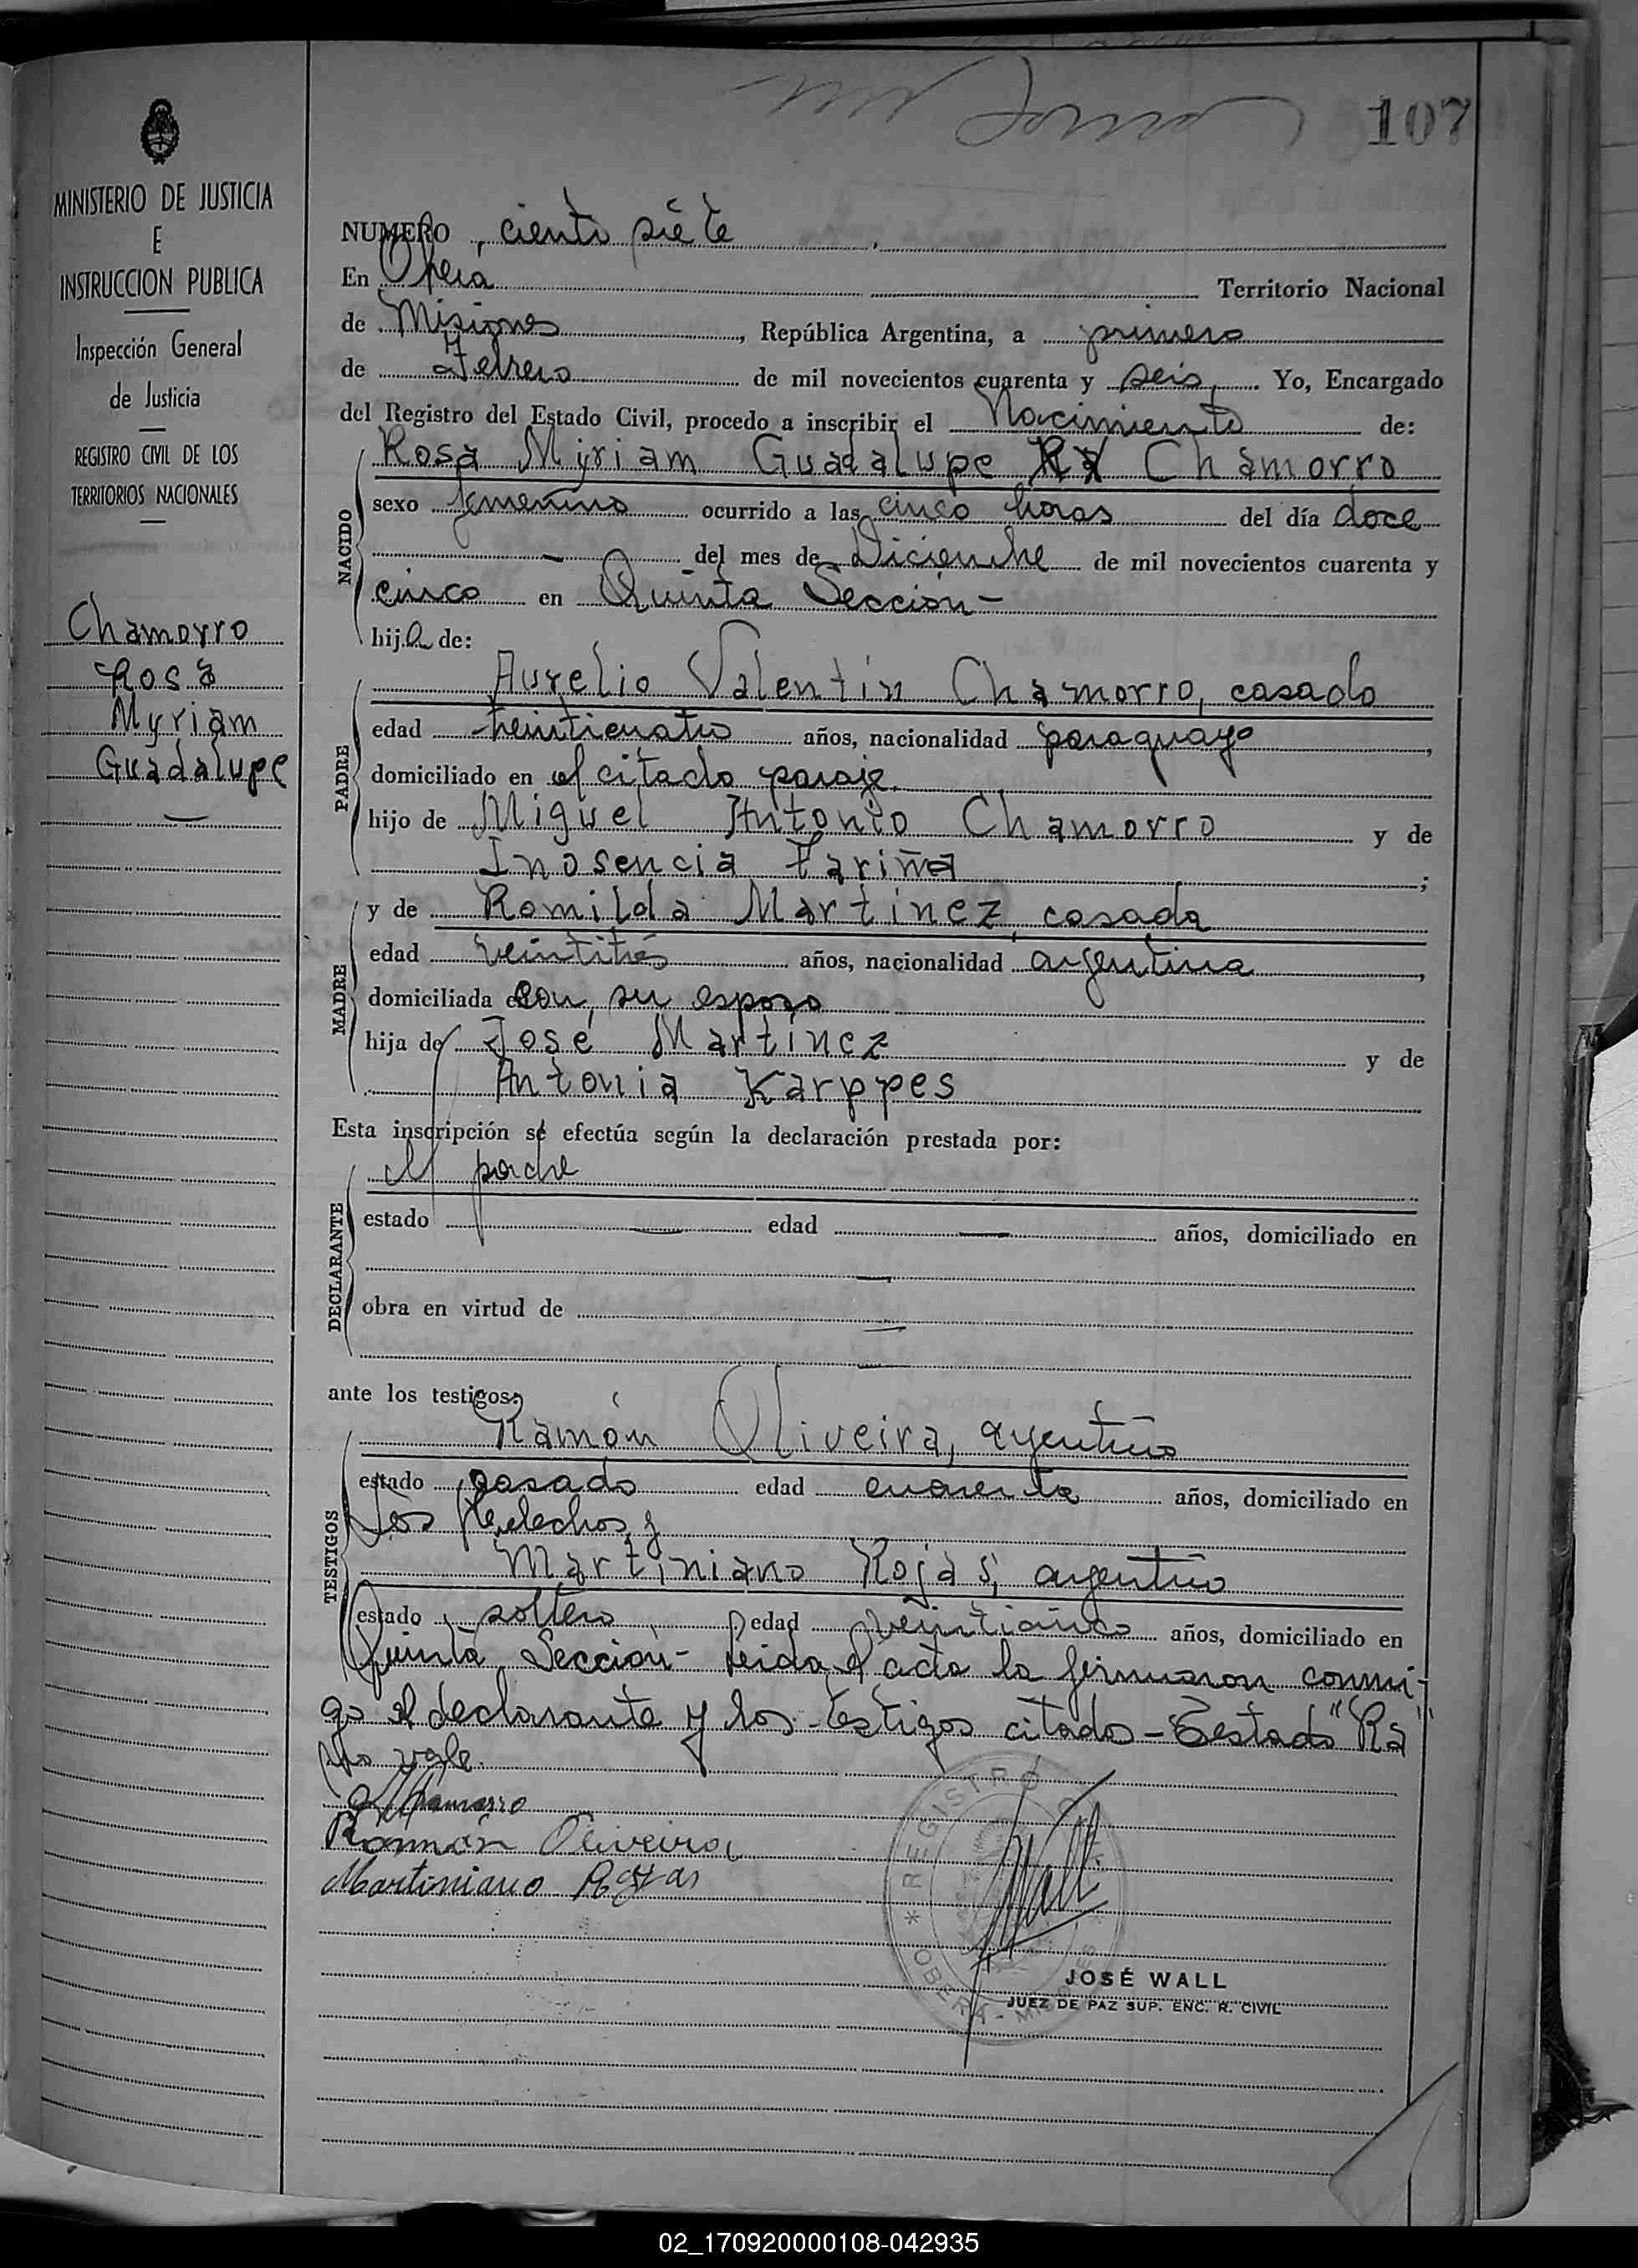 107
MINISTERIO DE JUSTICIA
E
INSTRUCCION PUBLICA
Inspección General
de Justicia
REGISTRO CIVIL DE LOS
TERRITORIOS NACIONALES
Chamorro
Rosa
Myriam
Guadalupe
NUMERO ciento siete
En Oberá Territorio Nacional
de Misiones, República Argentina, a primero
de Febrero de mil novecientos cuarenta y seis. Yo, Encargado
del Registro del Estado Civil, procedo a inscribir el Nacimiento de:
NACIDO
Rosa Myriam Guadalupe Ra Chamorro
sexo femenino ocurrido a las cinco horas del día doce
— del mes de Diciembre de mil novecientos cuarenta y
cinco en Quinta Sección-
hija de:
PADRE
Aurelio Valentín Chamorro, casado
edad veinticuatro años, nacionalidad paraguayo,
domiciliado en el citado paraje.
hijo de Miguel Antonio Chamorro y de
Inosencia Fariña;
MADRE
y de Romilda Martinez, casada
edad veintitrés años, nacionalidad argentina,
domiciliada con su esposo
hija de José Martínez y de
Antonia Karppes
Esta inscripción se efectúa según la declaración prestada por:
DECLARANTE
el padre
estado — edad — años, domiciliado en
—
obra en virtud de —
—
ante los testigos:
TESTIGOS
Ramón Oliveira, argentino
estado casado edad cuarenta años, domiciliado en
Los Helechos y
Martiniano Rojas, argentino
estado soltero edad veinticinco años, domiciliado en
Quinta Sección- Leida el acta la firmaron conmi-
go el declarante y los testigos citados- Testado "Ra"
No vale.
Chamorro
Ramón Oliveira
Martiniano Rojas
REGISTRO
OBERÁ - MISIONES
Wall
JOSÉ WALL
JUEZ DE PAZ SUP. ENC. R. CIVIL
02_170920000108-042935